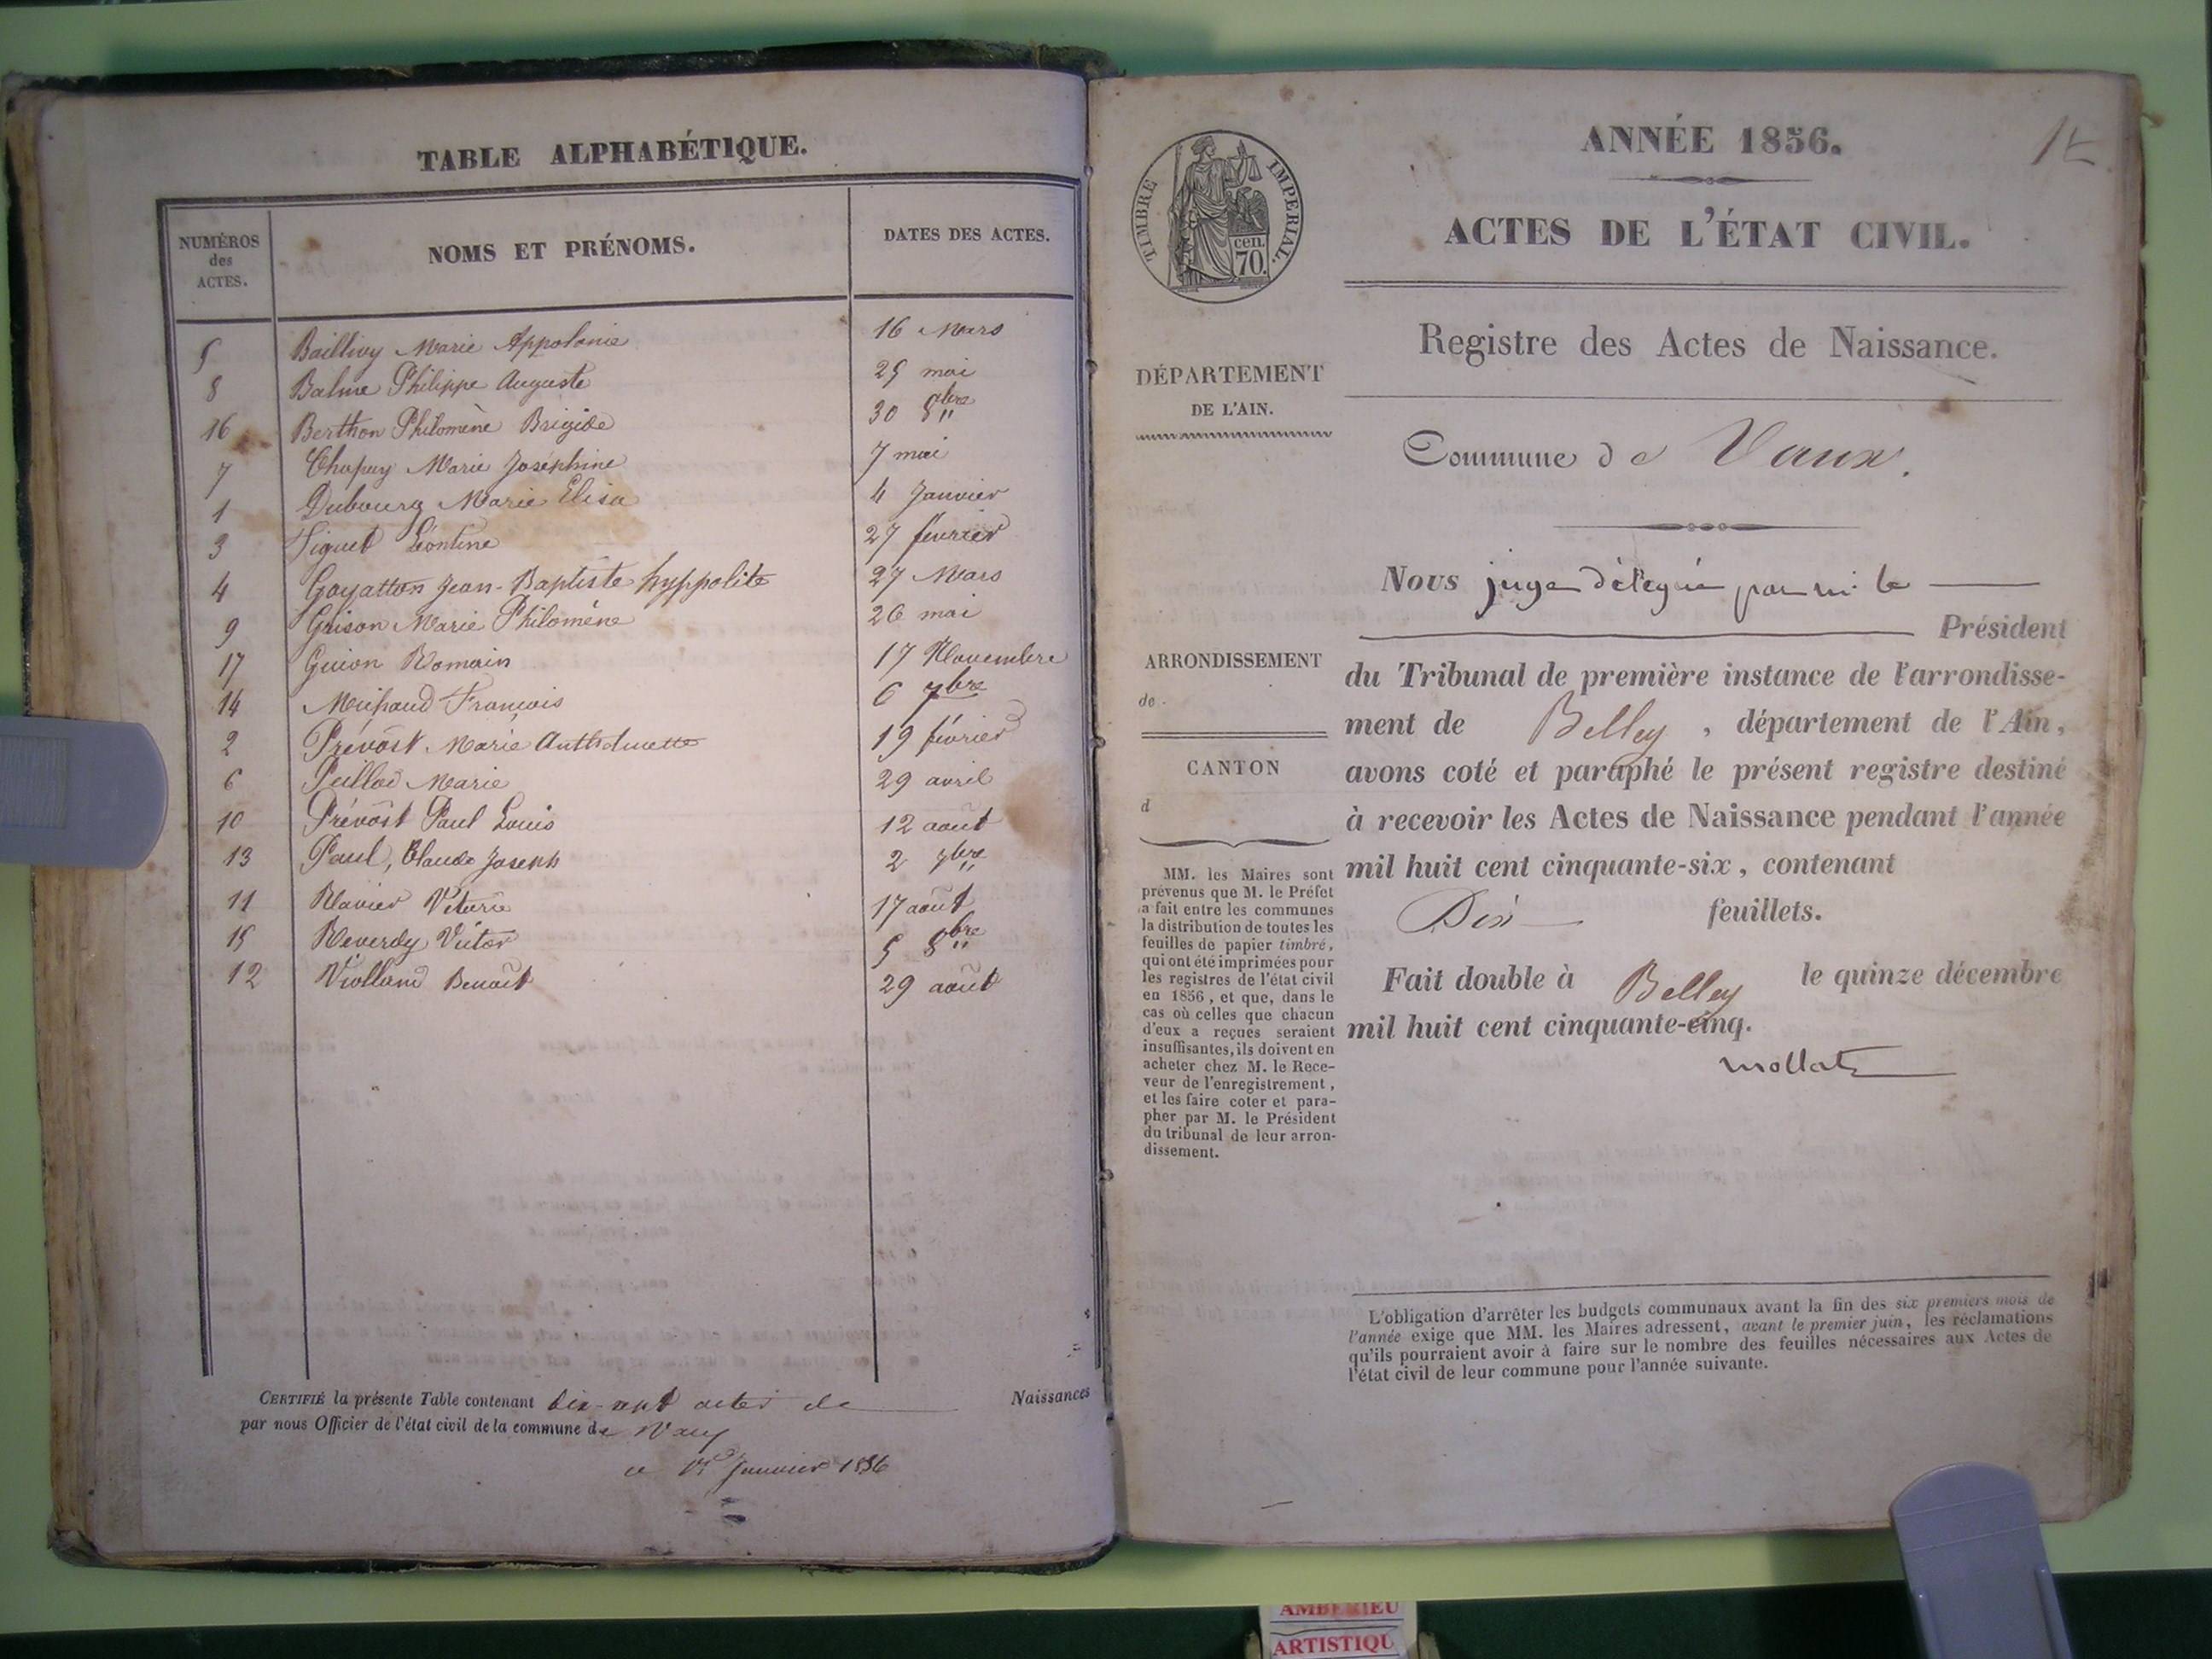 TABLE ALPHABÉTIQUE.
NUMÉROS
des
ACTES.
NOMS ET PRÉNOMS.
DATES DES ACTES.
5 Baillivy Marie Appolonie 16 Mars
8 Balme Philippe Auguste 25 mai
16 Berthon Philomène Brigide 30 8bre
7 Chapuy Marie Joséphine 7 mai
1 Dubourg Marie Elisa 4 Janvier
3 Figuet Léontine 27 février
4 Goyatton Jean-Baptiste hyppolite 27 Mars
9 Grison Marie Philomène 26 mai
17 Guion Romain 17 Novembre
14 François 6 7bre
2 Prévost Marie 19 février
6 Marie 29 avril
10 Prévost Paul Louis 12 août
13 Paul, Claude Joseph 2 7bre
11 Ravier 17 août
15 Reverdy Victor 5 8bre
12 Violland Benoit 29 août
CERTIFIÉ la présente Table contenant dix-sept actes de Naissances
par nous Officier de l'état civil de la commune de Vaux
ce 1er Janvier 1856
TIMBRE IMPERIAL.
cen.
70.
ANNÉE 1856.
ACTES DE L'ÉTAT CIVIL.
Registre des Actes de Naissance.
Commune de Vaux.
DÉPARTEMENT
DE L'AIN.
ARRONDISSEMENT
de
CANTON
d
MM. les Maires sont
prévenus que M. le Préfet
a fait entre les communes
la distribution de toutes les
feuilles de papier timbré,
qui ont été imprimées pour
les registres de l'état civil
en 1856, et que, dans le
cas où celles que chacun
d'eux a reçues seraient
insuffisantes, ils doivent en
acheter chez M. le Rece-
veur de l'enregistrement,
et les faire coter et para-
pher par M. le Président
du tribunal de leur arron-
dissement.
Nous juge délégué par mr le
Président
du Tribunal de première instance de l'arrondisse-
ment de Belley, département de l'Ain,
avons coté et paraphé le présent registre destiné
à recevoir les Actes de Naissance pendant l'année
mil huit cent cinquante-six, contenant
Dix feuillets.
Fait double à Belley le quinze décembre
mil huit cent cinquante-cinq.
L'obligation d'arrêter les budgets communaux avant la fin des six premiers mois de
l'année exige que MM. les Maires adressent, avant le premier juin, les réclamations
qu'ils pourraient avoir à faire sur le nombre des feuilles nécessaires aux Actes de
l'état civil de leur commune pour l'année suivante.
AMBERIEU
ARTISTIQU